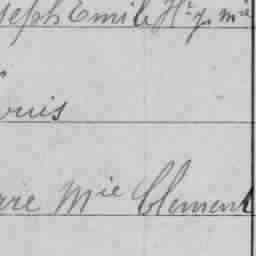 seph Emile Hri J. mie
ouis
rre Mie Clement